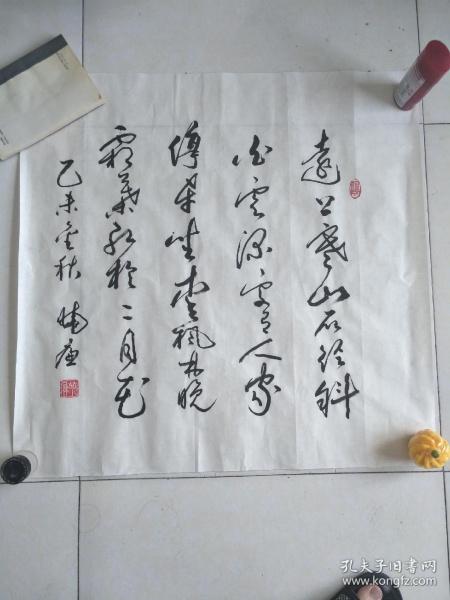 遠上寒山石徑斜
白雲深處有人家
停車坐愛楓林晚
霜葉紅於二月花
乙未金秋
孔夫子旧书网
www.kongfz.com